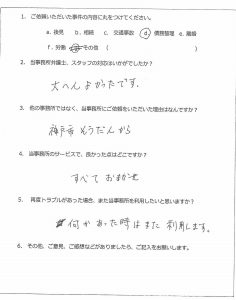 1. ご依頼いただいた事件の内容に丸をつけてください。
a. 後見 b. 相続 c. 交通事故 d. 債務整理 e. 離婚
f. 労働 その他 ( )
2. 当事務所弁護士、スタッフの対応はいかがでしたか?
大へんよかったです。
3. 他の事務所ではなく、当事務所にご依頼をいただいた理由はなんですか?
神戸市 そうだんから
4. 当事務所のサービスで、良かった点はどこですか?
すべて おまかせ
5. 再度トラブルがあった場合、また当事務所を利用したいと思いますか?
何かあった時はまた利用します。
6. その他、ご意見、ご感想などがありましたら、ご記入をお願いします。